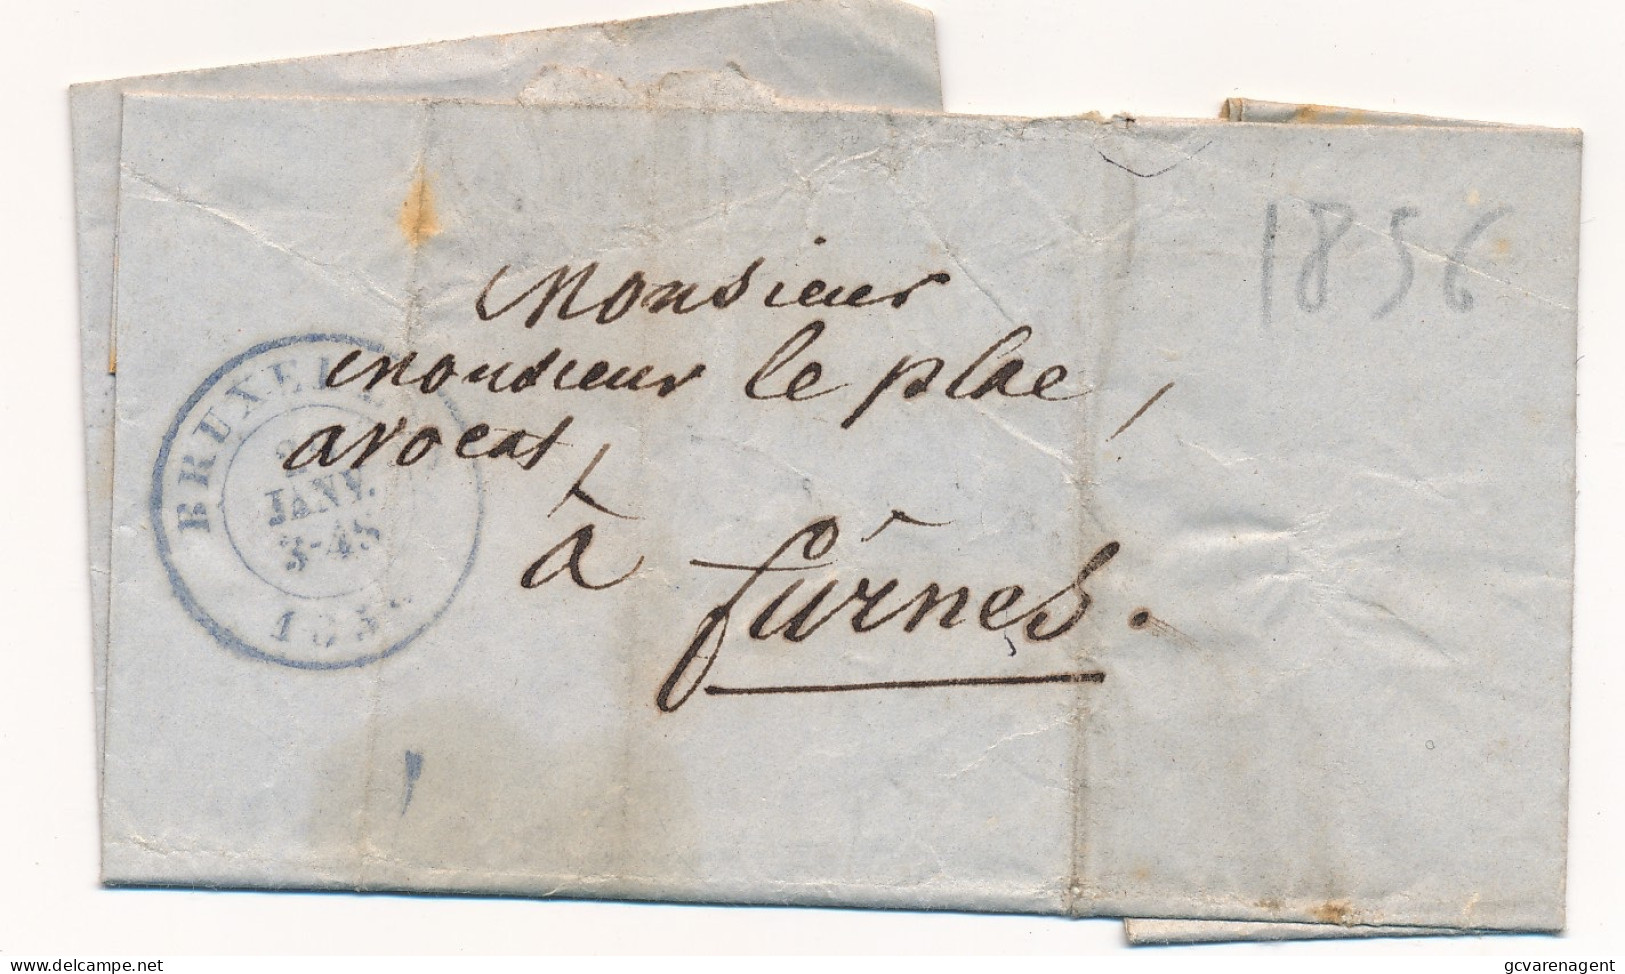 1856
Monsieur
monsieur le plae,
avocat,
à
fûrnes.
BRUXELLES
2
JANV.
3-45
185
delcampe.net
gcvarenagent